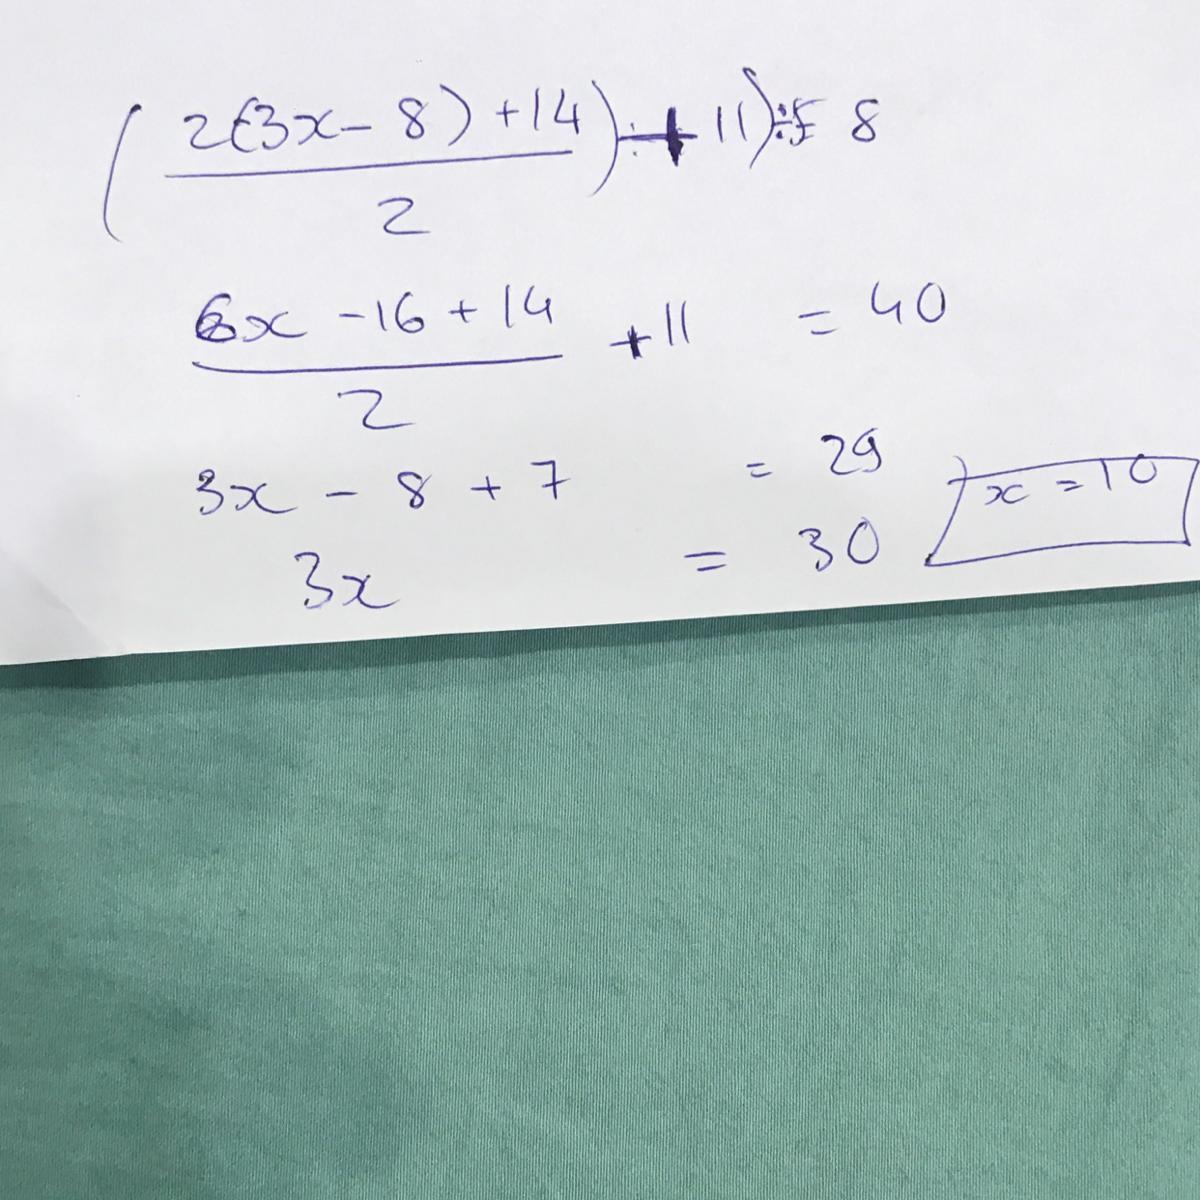 ( 2(3x - 8) + 14 / 2 ) + 11) ÷ 5 = 8
6x - 16 + 14 / 2 + 11 = 40
3x - 8 + 7 = 29
3x = 30
x = 10